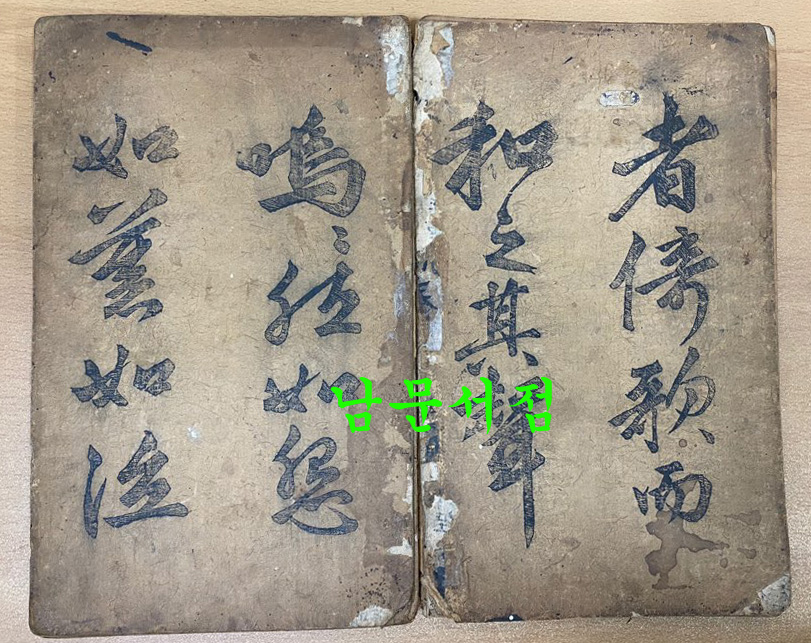 者倚歌而
和之其聲
嗚〻然如怨
如慕如泣
남문서점